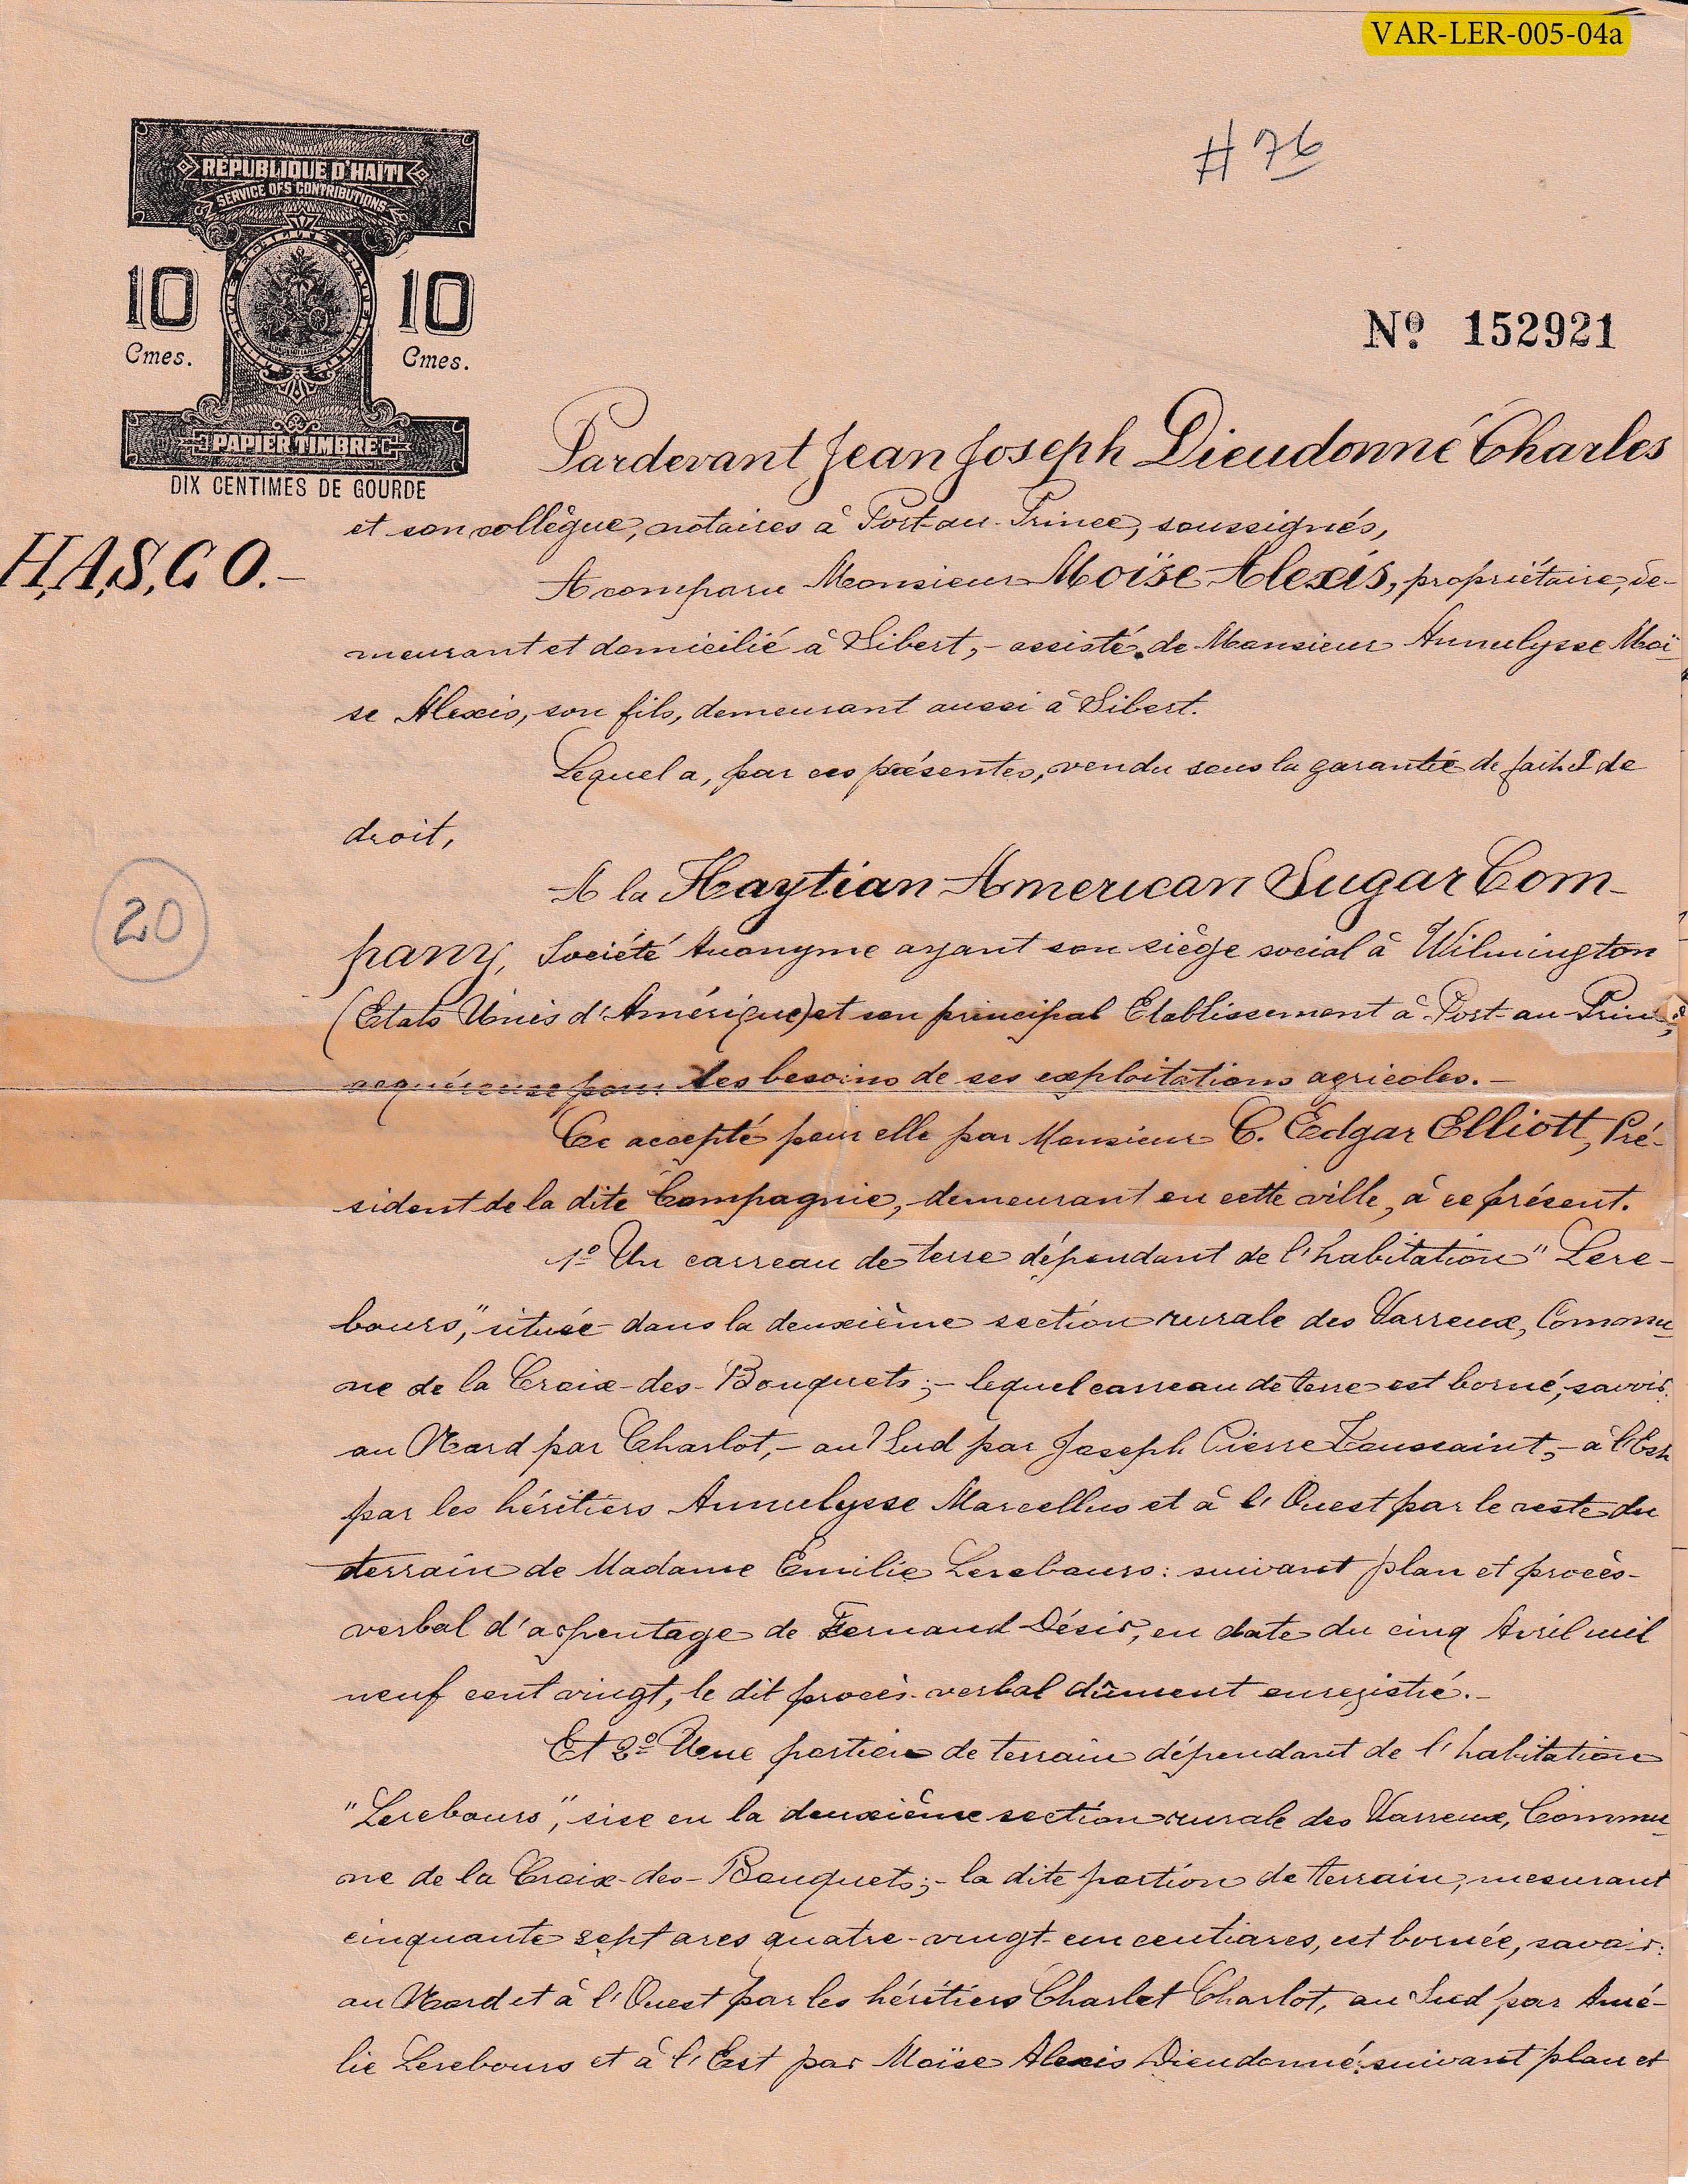 VAR-LER-005-04a
# 76
RÉPUBLIQUE D'HAÏTI
SERVICE DES CONTRIBUTIONS
10 10
Cmes. Cmes.
PAPIER TIMBRE
DIX CENTIMES DE GOURDE
Nº 152921
Pardevant Jean Joseph Dieudonné Charles
et son collègue, notaires à Port-au-Prince, soussignés,
H.A.S.CO.-
A comparu Monsieur Moïse Alexis, propriétaire, de-
meurant et domicilié à Sibert, - assisté de Monsieur Annulysse Moï-
se Alexis, son fils, demeurant aussi à Sibert.
Lequel a, par ces présentes, vendu sous la garantie de fait et de
droit,
A la Haytian American Sugar Com-
20
pany, Société Anonyme ayant son siège social à Wilmington
(Etats Unis d'Amérique) et son principal Etablissement à Port-au-Prin
acquéreuse pour les besoins de ses exploitations agricoles.-
Ce accepté pour elle par Monsieur C. Edgar Elliott, Pré-
sident de la dite Compagnie, demeurant en cette ville, à ce présent.
1º Un carreau de terre dépendant de l'habitation "Lere-
bours," située dans la deuxième section rurale des Varreux, Commu-
ne de la Croix-des-Bouquets; - lequel carreau de terre est borné, savoir:
au Nord par Charlot, - au Sud par Joseph Pierre Toussaint, - à l'Est
par les héritiers Annulysse Marcellus et à l'Ouest par le reste du
terrain de Madame Emilie Lerebours: suivant plan et procès-
verbal d'arpentage de Fernand Désir, en date du cinq Avril mil
neuf cent vingt, le dit procès-verbal dûment enregistré.-
Et 2º Une portion de terrain dépendant de l'habitation
"Lerebours," sise en la deuxième section rurale des Varreux, Commu-
ne de la Croix-des-Bouquets; - la dite portion de terrain, mesurant
cinquante sept ares quatre-vingt-un centiares, est bornée, savoir:
au Nord et à l'Ouest par les héritiers Charlot Charlot, au Sud par Amé-
lie Lerebours et à l'Est par Moïse Alexis Dieudonné: suivant plan et